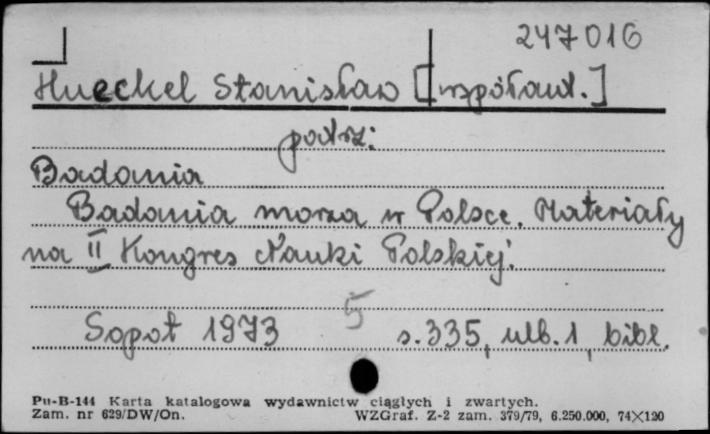 247016
Hueckel Stanisław [współaut.]
patrz:
Badania
Badania morza w Polsce. Materiały
na II Kongres Nauki Polskiej.
5
Sopot 1973 s. 335, ulb. 1, bibl.
Pu-B-144 Karta katalogowa wydawnictw ciągłych i zwartych.
Zam. nr 629/DW/On. WZGraf. Z-2 zam. 379/79, 6.250.000, 74×120